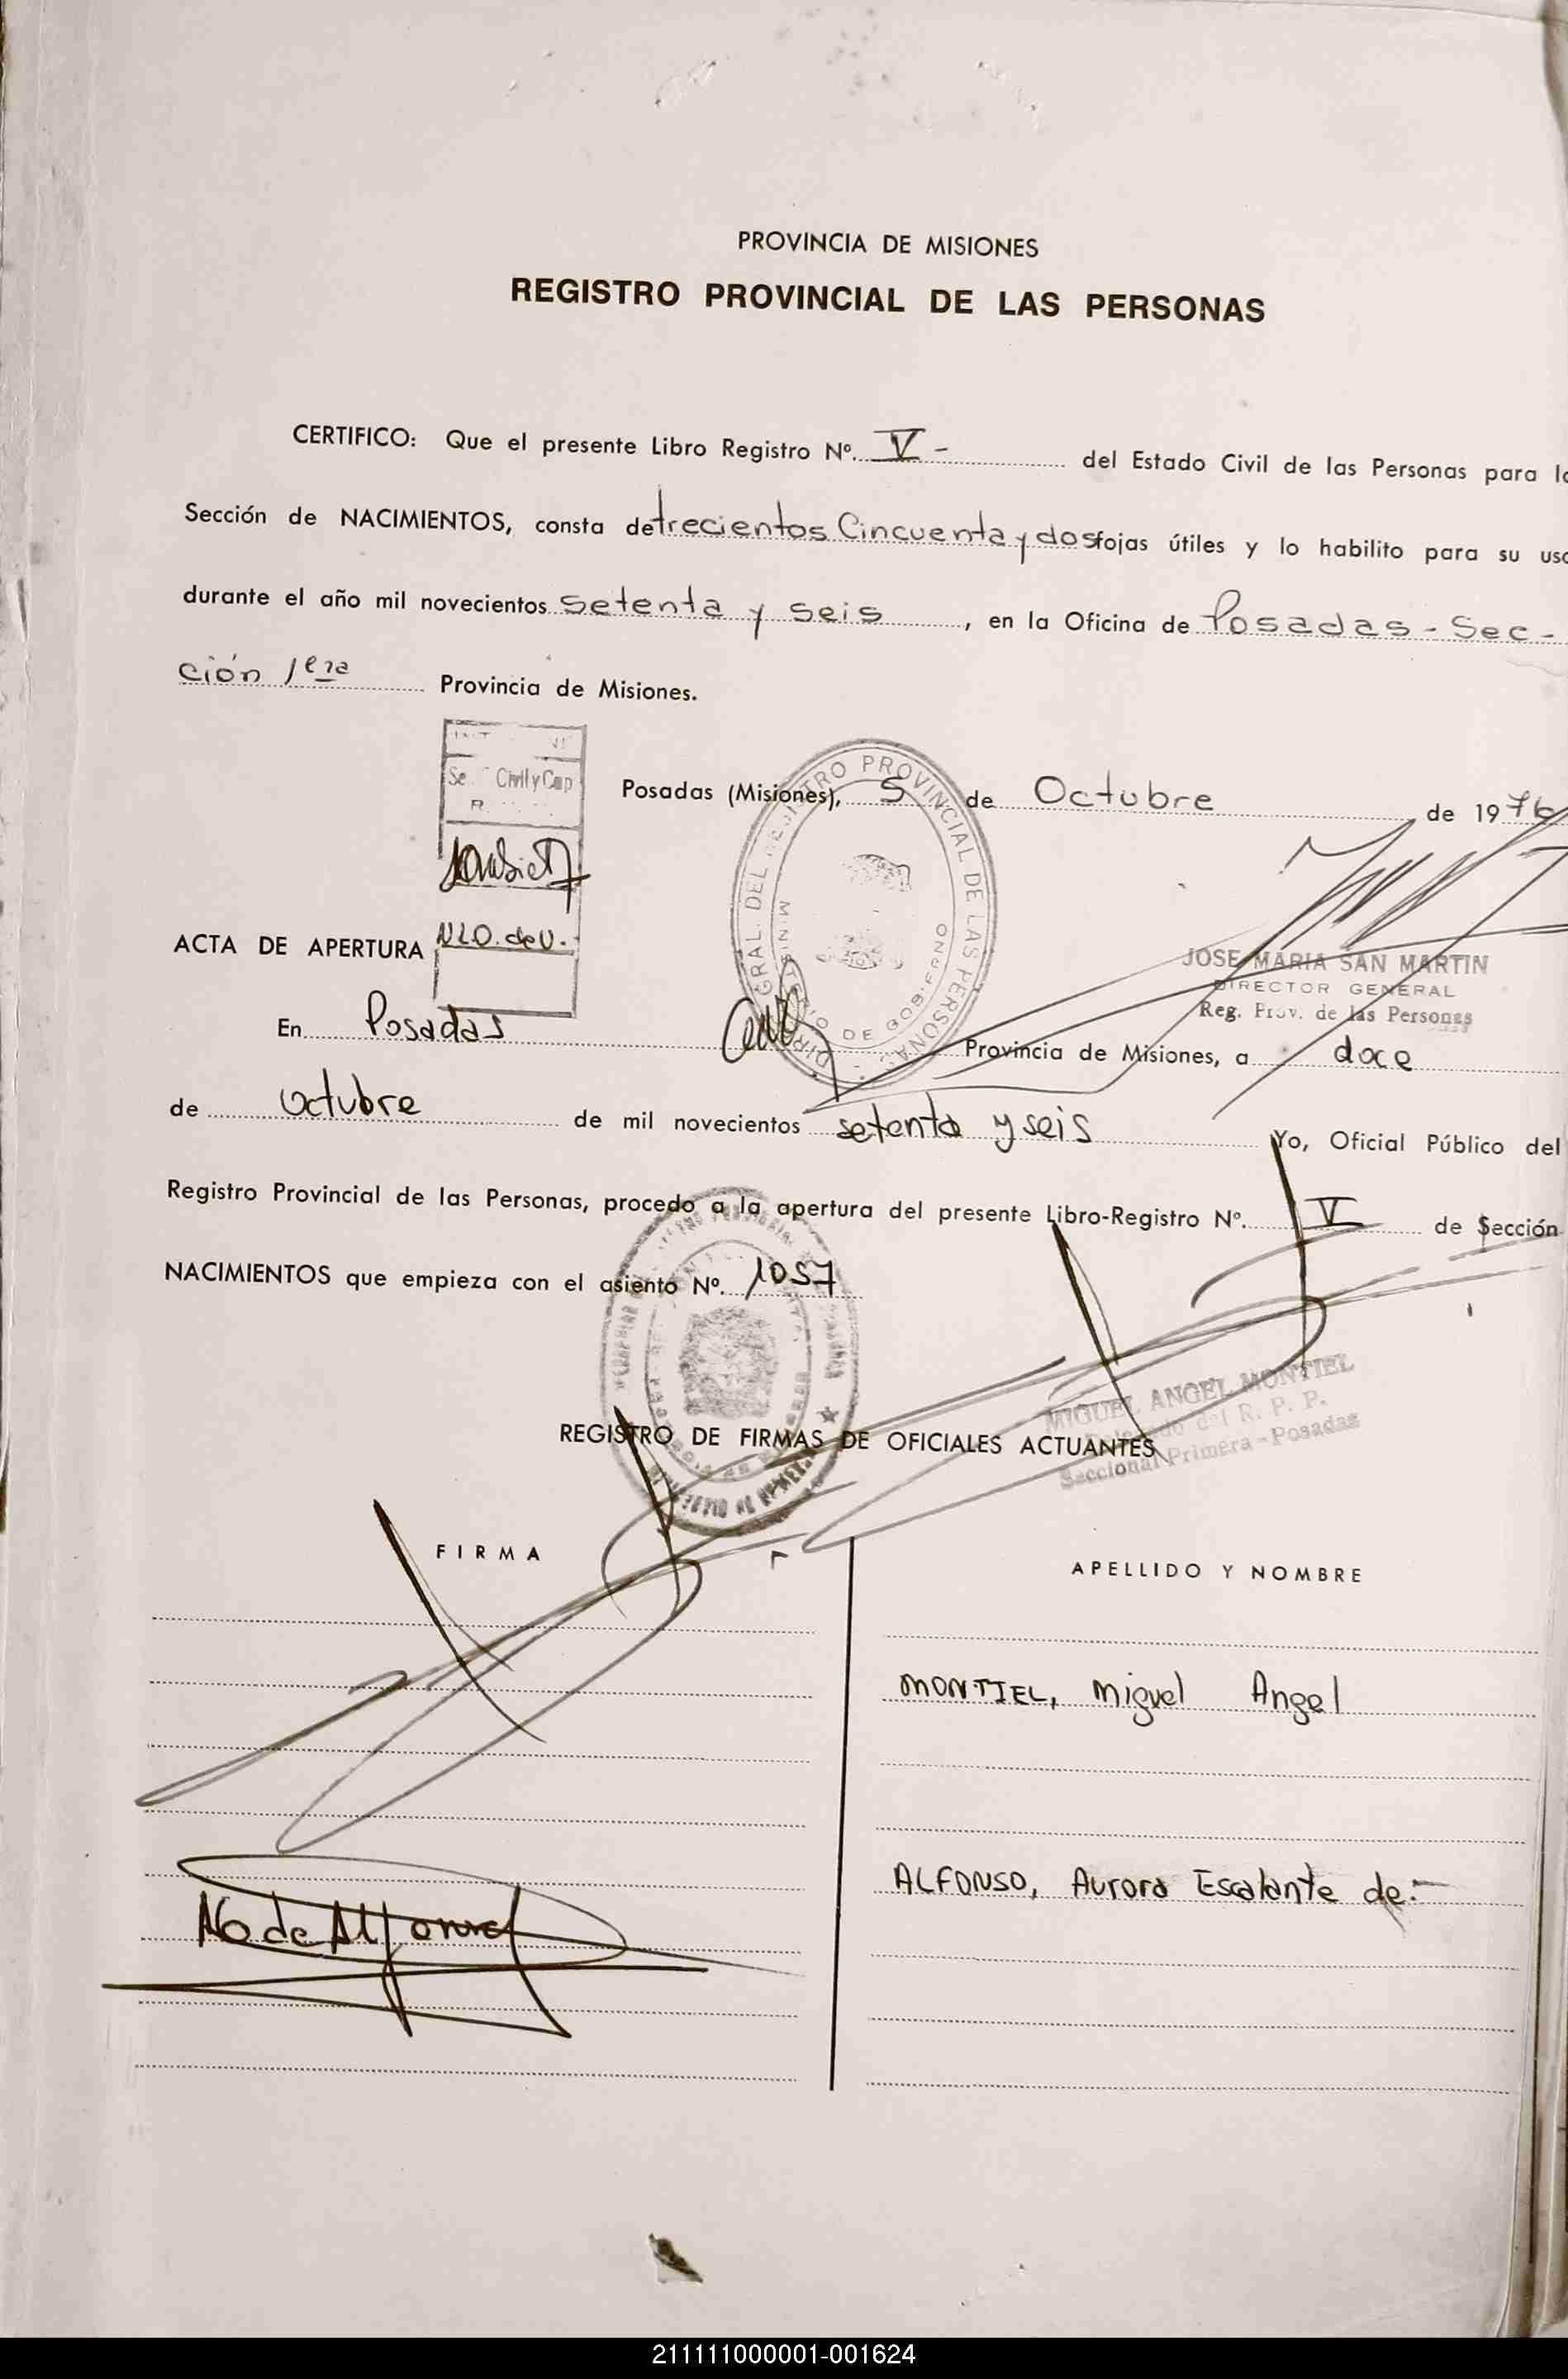 PROVINCIA DE MISIONES
REGISTRO PROVINCIAL DE LAS PERSONAS
CERTIFICO: Que el presente Libro Registro Nº. V - del Estado Civil de las Personas para l
Sección de NACIMIENTOS, consta de trecientos Cincuenta y dos fojas útiles y lo habilito para su uso
durante el año mil novecientos setenta y seis, en la Oficina de Posadas - Sec -
ción 1era Provincia de Misiones.
Civil y Cap
Posadas (Misiones), 5 de Octubre de 1976
DIR. GRAL. DEL REGISTRO PROVINCIAL DE LAS PERSONAS
MINISTERIO DE GOBIERNO
JOSE MARIA SAN MARTIN
DIRECTOR GENERAL
Reg. Prov. de las Personas
ACTA DE APERTURA
En Posadas Provincia de Misiones, a doce
de octubre de mil novecientos setenta y seis Yo, Oficial Público del
Registro Provincial de las Personas, procedo a la apertura del presente Libro-Registro Nº. V de Sección
NACIMIENTOS que empieza con el asiento Nº. 1057
MIGUEL ANGEL MONTIEL
Delegado del R. P. P.
Seccional Primera - Posadas
REGISTRO DE FIRMAS DE OFICIALES ACTUANTES
FIRMA
APELLIDO Y NOMBRE
MONTIEL, Miguel Angel
ALFONSO, Aurora Escalante de.-
211111000001-001624